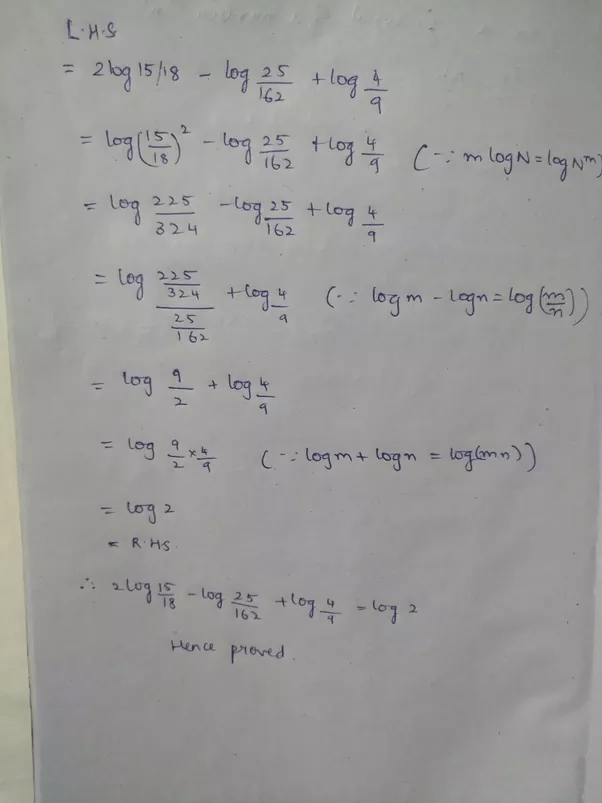 L.H.S
= 2log 15/18 - log 25/162 + log 4/9
= log(15/18)² - log 25/162 + log 4/9 (∵ m logN = logNᵐ)
= log 225/324 - log 25/162 + log 4/9
= log (225/324)/(25/162) + log 4/9 (∵ logm - logn = log(m/n))
= log 9/2 + log 4/9
= log 9/2 × 4/9 (∵ logm + logn = log(mn))
= log 2
= R.H.S.
∴ 2log 15/18 - log 25/162 + log 4/9 = log 2
Hence proved.